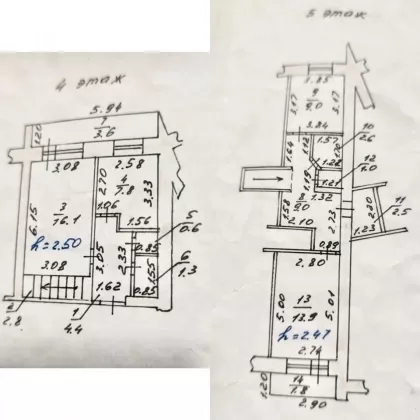 4 этаж
5.94
7
3.6
1.20
3.08
2.58
2.70
4
7.8
3.33
6.15
3
16.1
1.06
1.56
5
0.6
h=2.50
3.05
2.33
0.85
6
1.3
3.08
1.55
0.85
1.62
2
2.8
1
4.4
5 этаж
2.85
9
9.0
3.17
3.17
3.84
10
2.6
1.57
1.64
1.12
1.70
1.28
12
1.0
1.19
1.21
8
9.0
1.32
1.58
2.10
2.73
2.20
11
2.5
1.23
0.89
2.80
5.00
13
13.9
5.01
h=2.47
2.74
14
1.8
1.20
2.90